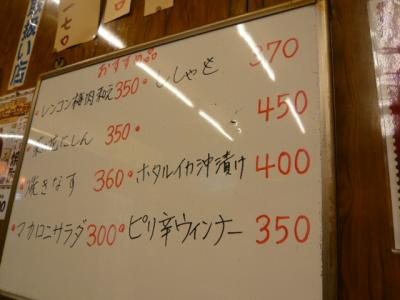 おすすめ品
・レンコン梅肉和え350
・ししゃも 370
にしん 350
・450
・焼きなす 360
・ホタルイカ沖漬け 400
・マカロニサラダ 300
・ピリ辛ウィンナー 350
扱い店
一七〇